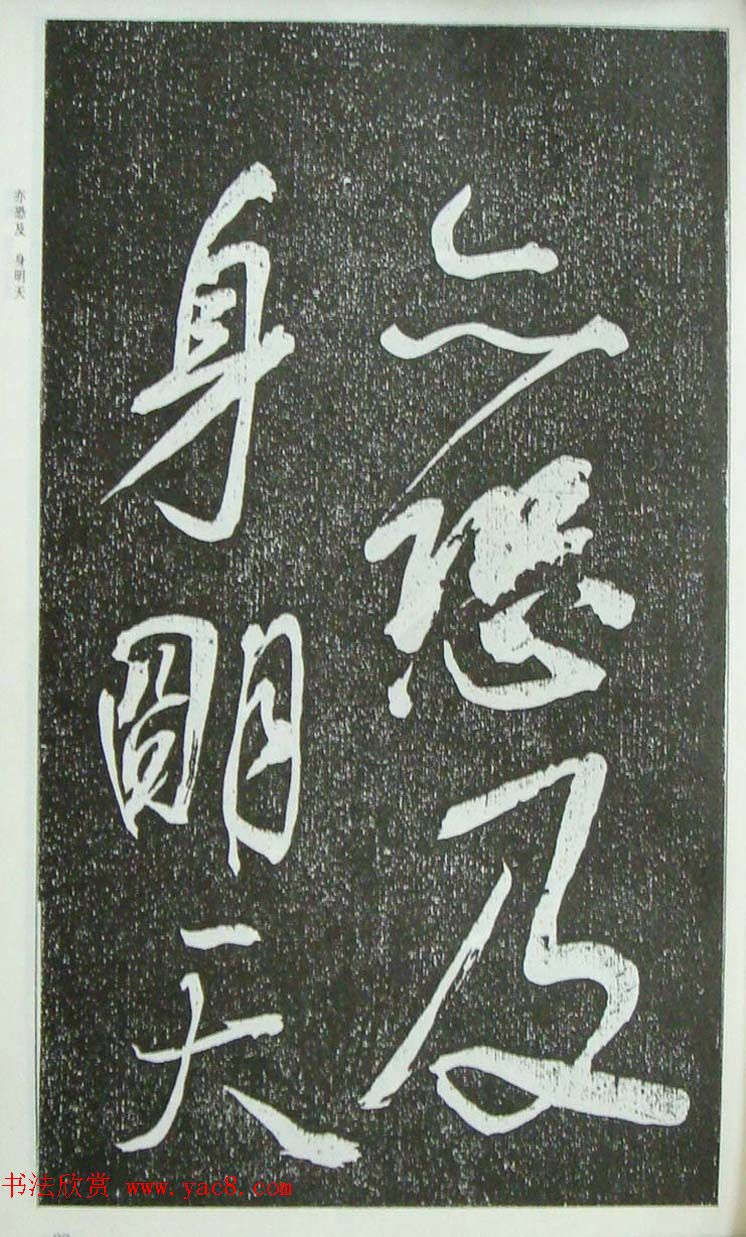 亦恐及
身明天
亦恐及 身明天
书法欣赏 www.yac8.com